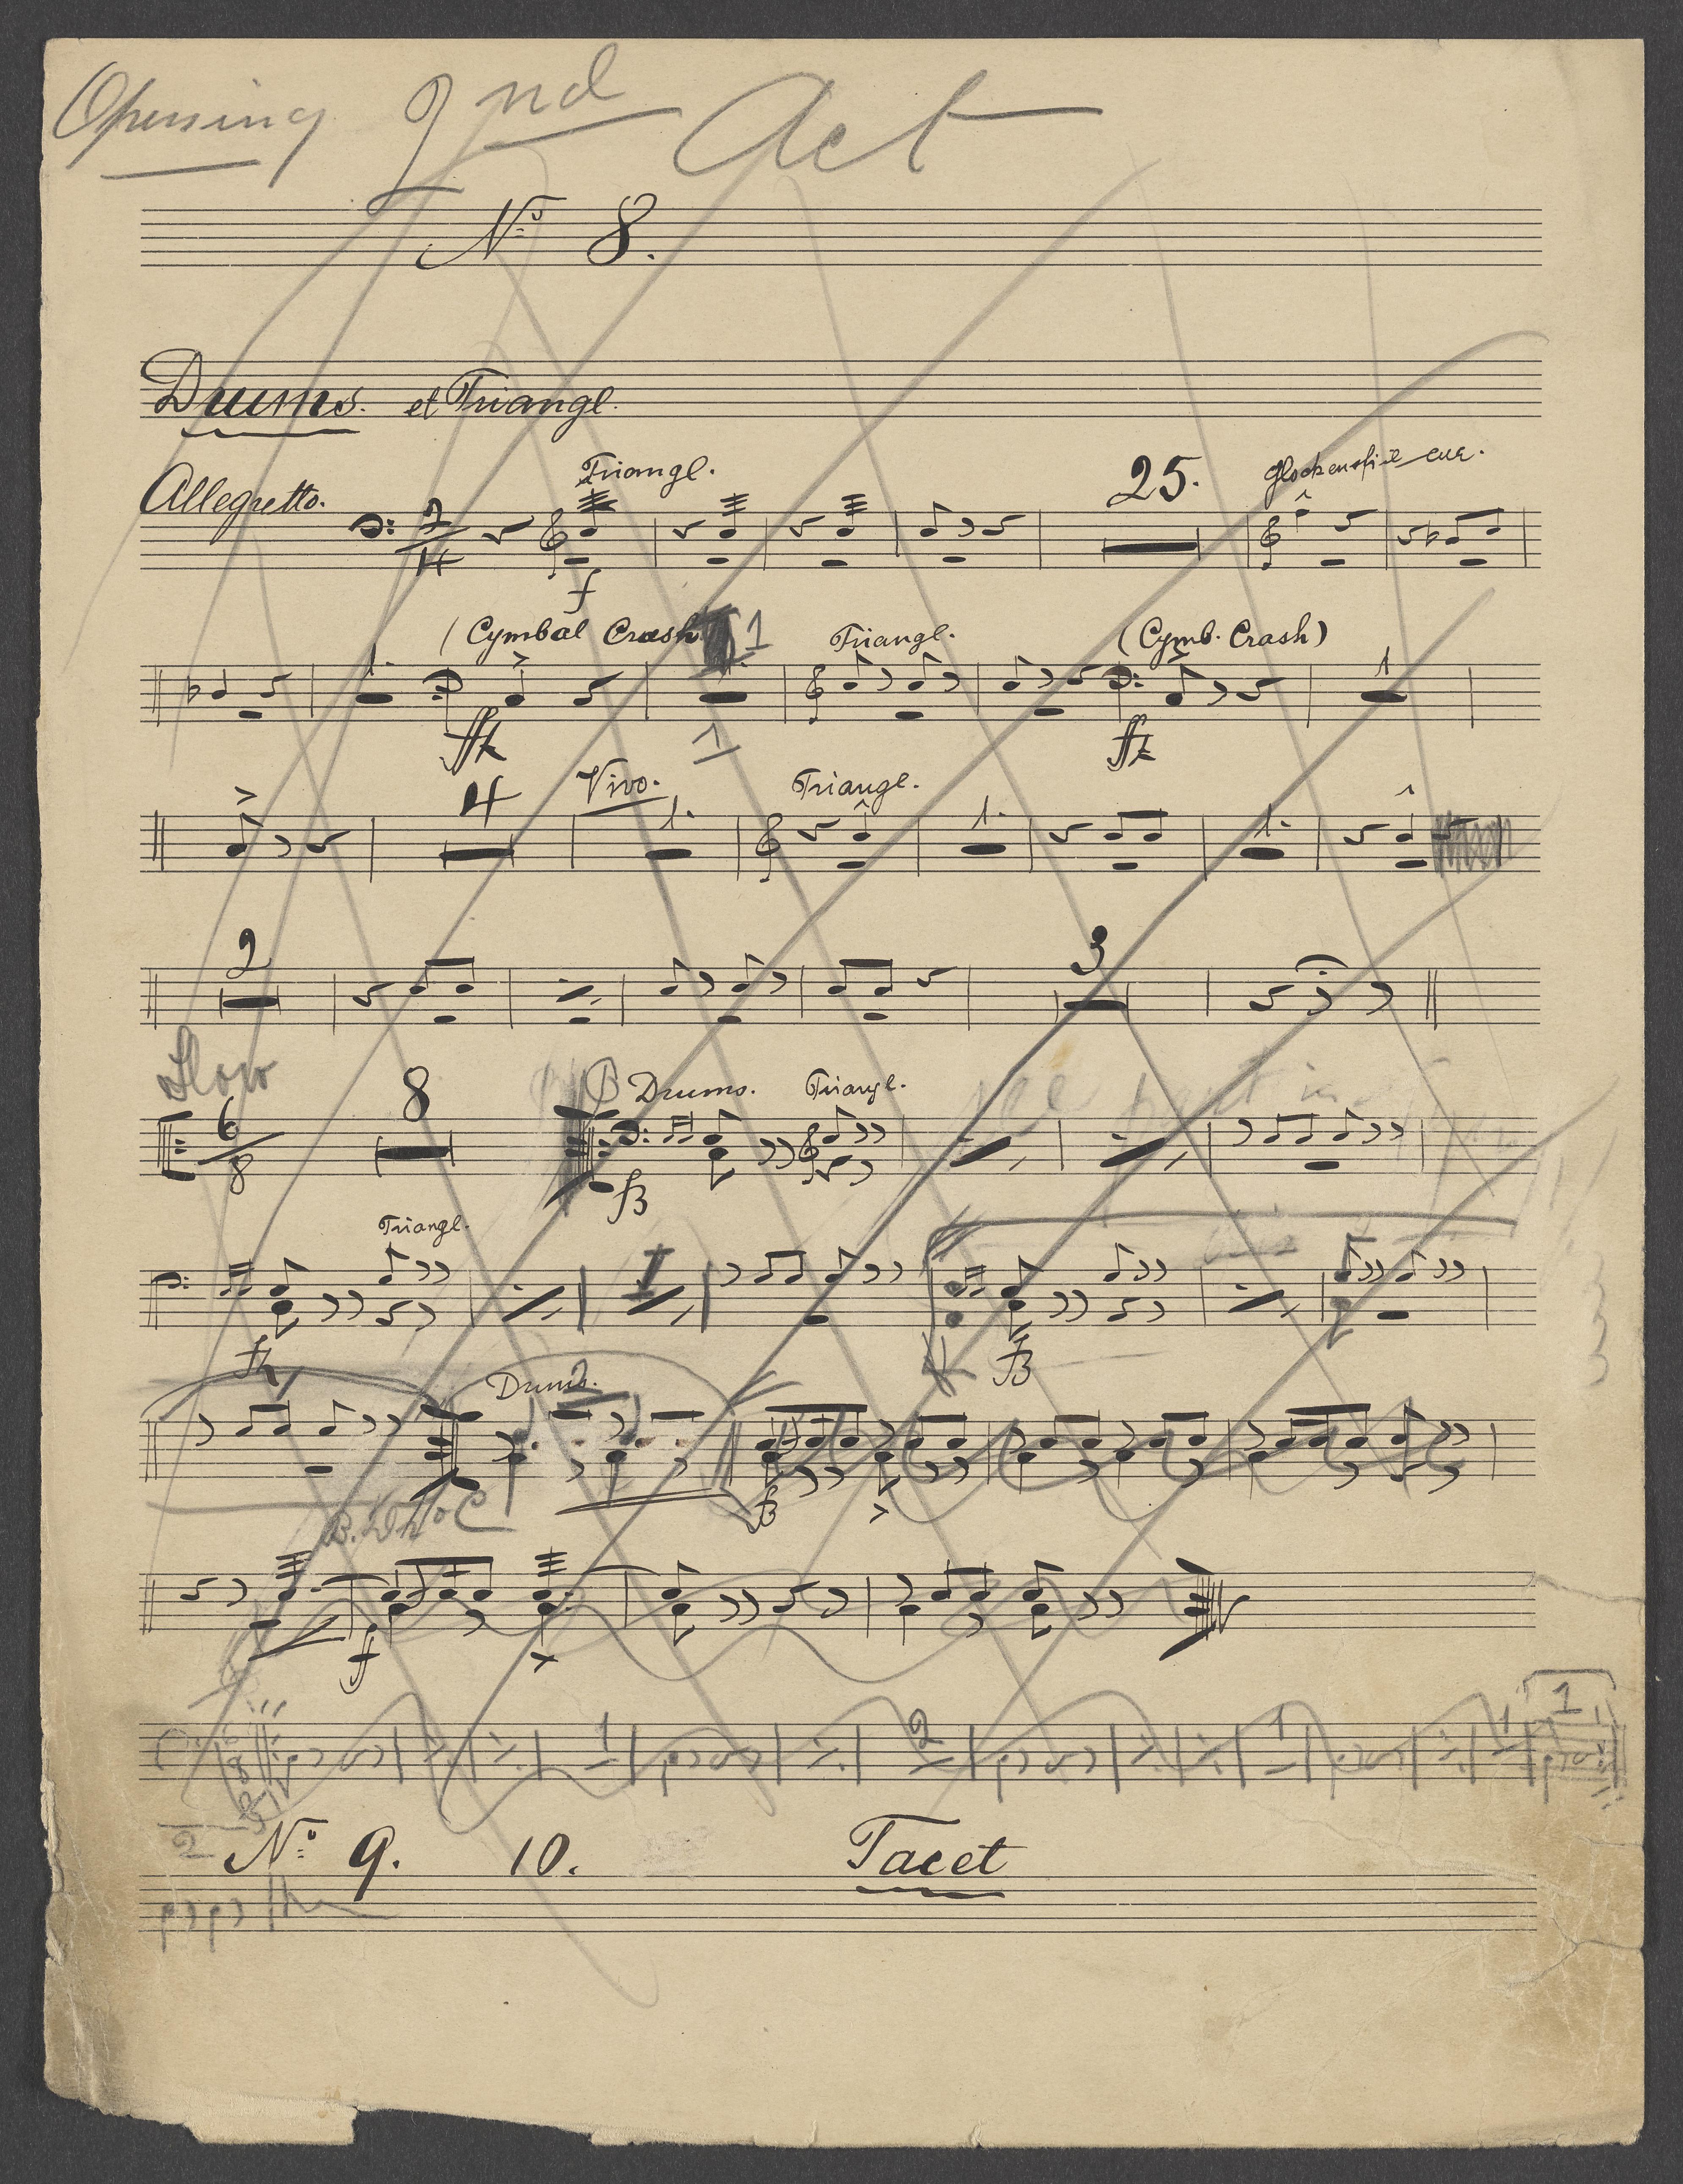 Opening 2nd Act
No 8.
Drums. et Triangl.
Allegretto. Triangl. 25. Glockenspiel cue.
2/4
f
(Cymbal Crash 1 Triangl. (Cymb. Crash)
1. 1
ffz 1 ffz
4 Vivo. Triangl.
1. 1. 1.
2 3
Slow 8 Drums. Triangl.
6/8
fz
Triangl.
1
fz fz
Drums. 2
fz
f
1 2 1 1 1
2
No 9. 10. Tacet